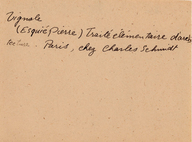 Vignole
(Esquié Pierre) Traité élémentaire d'archi
tecture. Paris, chez Charles Schmidt